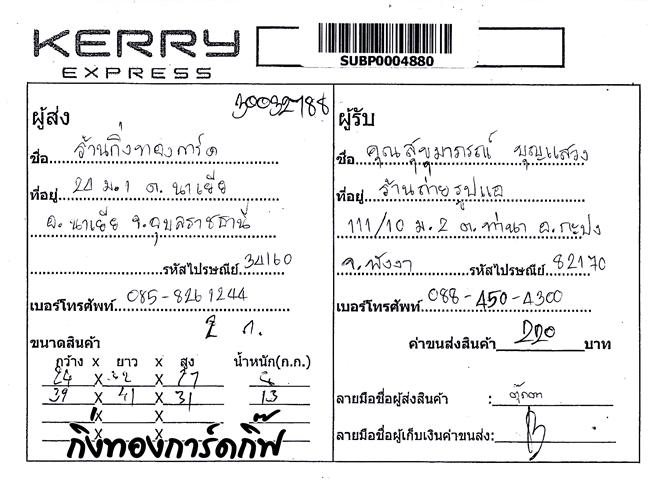 KERRY
EXPRESS
SUBP0004880
30032788
ผู้ส่ง
ชื่อ ร้านกิ่งทองการ์ด
ที่อยู่ 20 ม.1 ต. นาเยีย
อ. นาเยีย จ.อุบลราชธานี
รหัสไปรษณีย์ 34160
เบอร์โทรศัพท์ 085-8261244
2 ก.
ขนาดสินค้า
กว้าง x ยาว x สูง น้ำหนัก(ก.ก.)
X X
39 X 41 X 31 13
X X
X X
กิ่งทองการ์ดกิ๊ฟ
ผู้รับ
ชื่อ คุณสุขุมาภรณ์ บุญแสวง
ที่อยู่ ร้านถ่ายรูปแอ
111/10 ม.2 ต.ท่านา อ.กะปง
จ.พังงา รหัสไปรษณีย์ 82170
เบอร์โทรศัพท์ 088-450-4300
ค่าขนส่งสินค้า 220 บาท
ลายมือชื่อผู้ส่งสินค้า : ตุ๊กตา
ลายมือชื่อผู้เก็บเงินค่าขนส่ง: